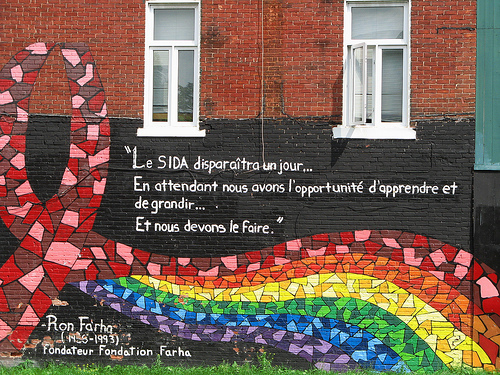 "Le SIDA disparaîtra un jour...
En attendant nous avons l'opportunité d'apprendre et
de grandir...
Et nous devons le faire."
-Ron Farha
Fondateur Fondation Farha